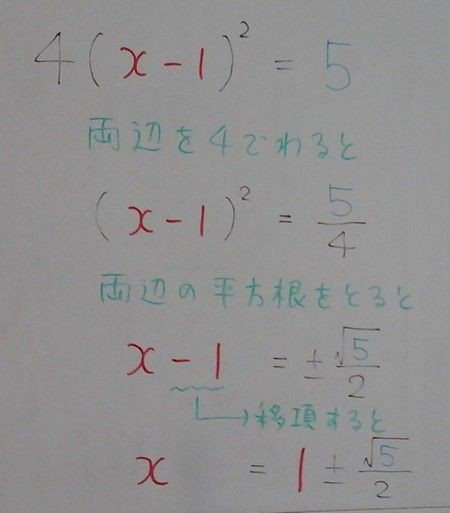 4(x-1)² = 5
両辺を4でわると
(x-1)² = 5/4
両辺の平方根をとると
x-1 = ±√5/2
移項すると
x = 1±√5/2